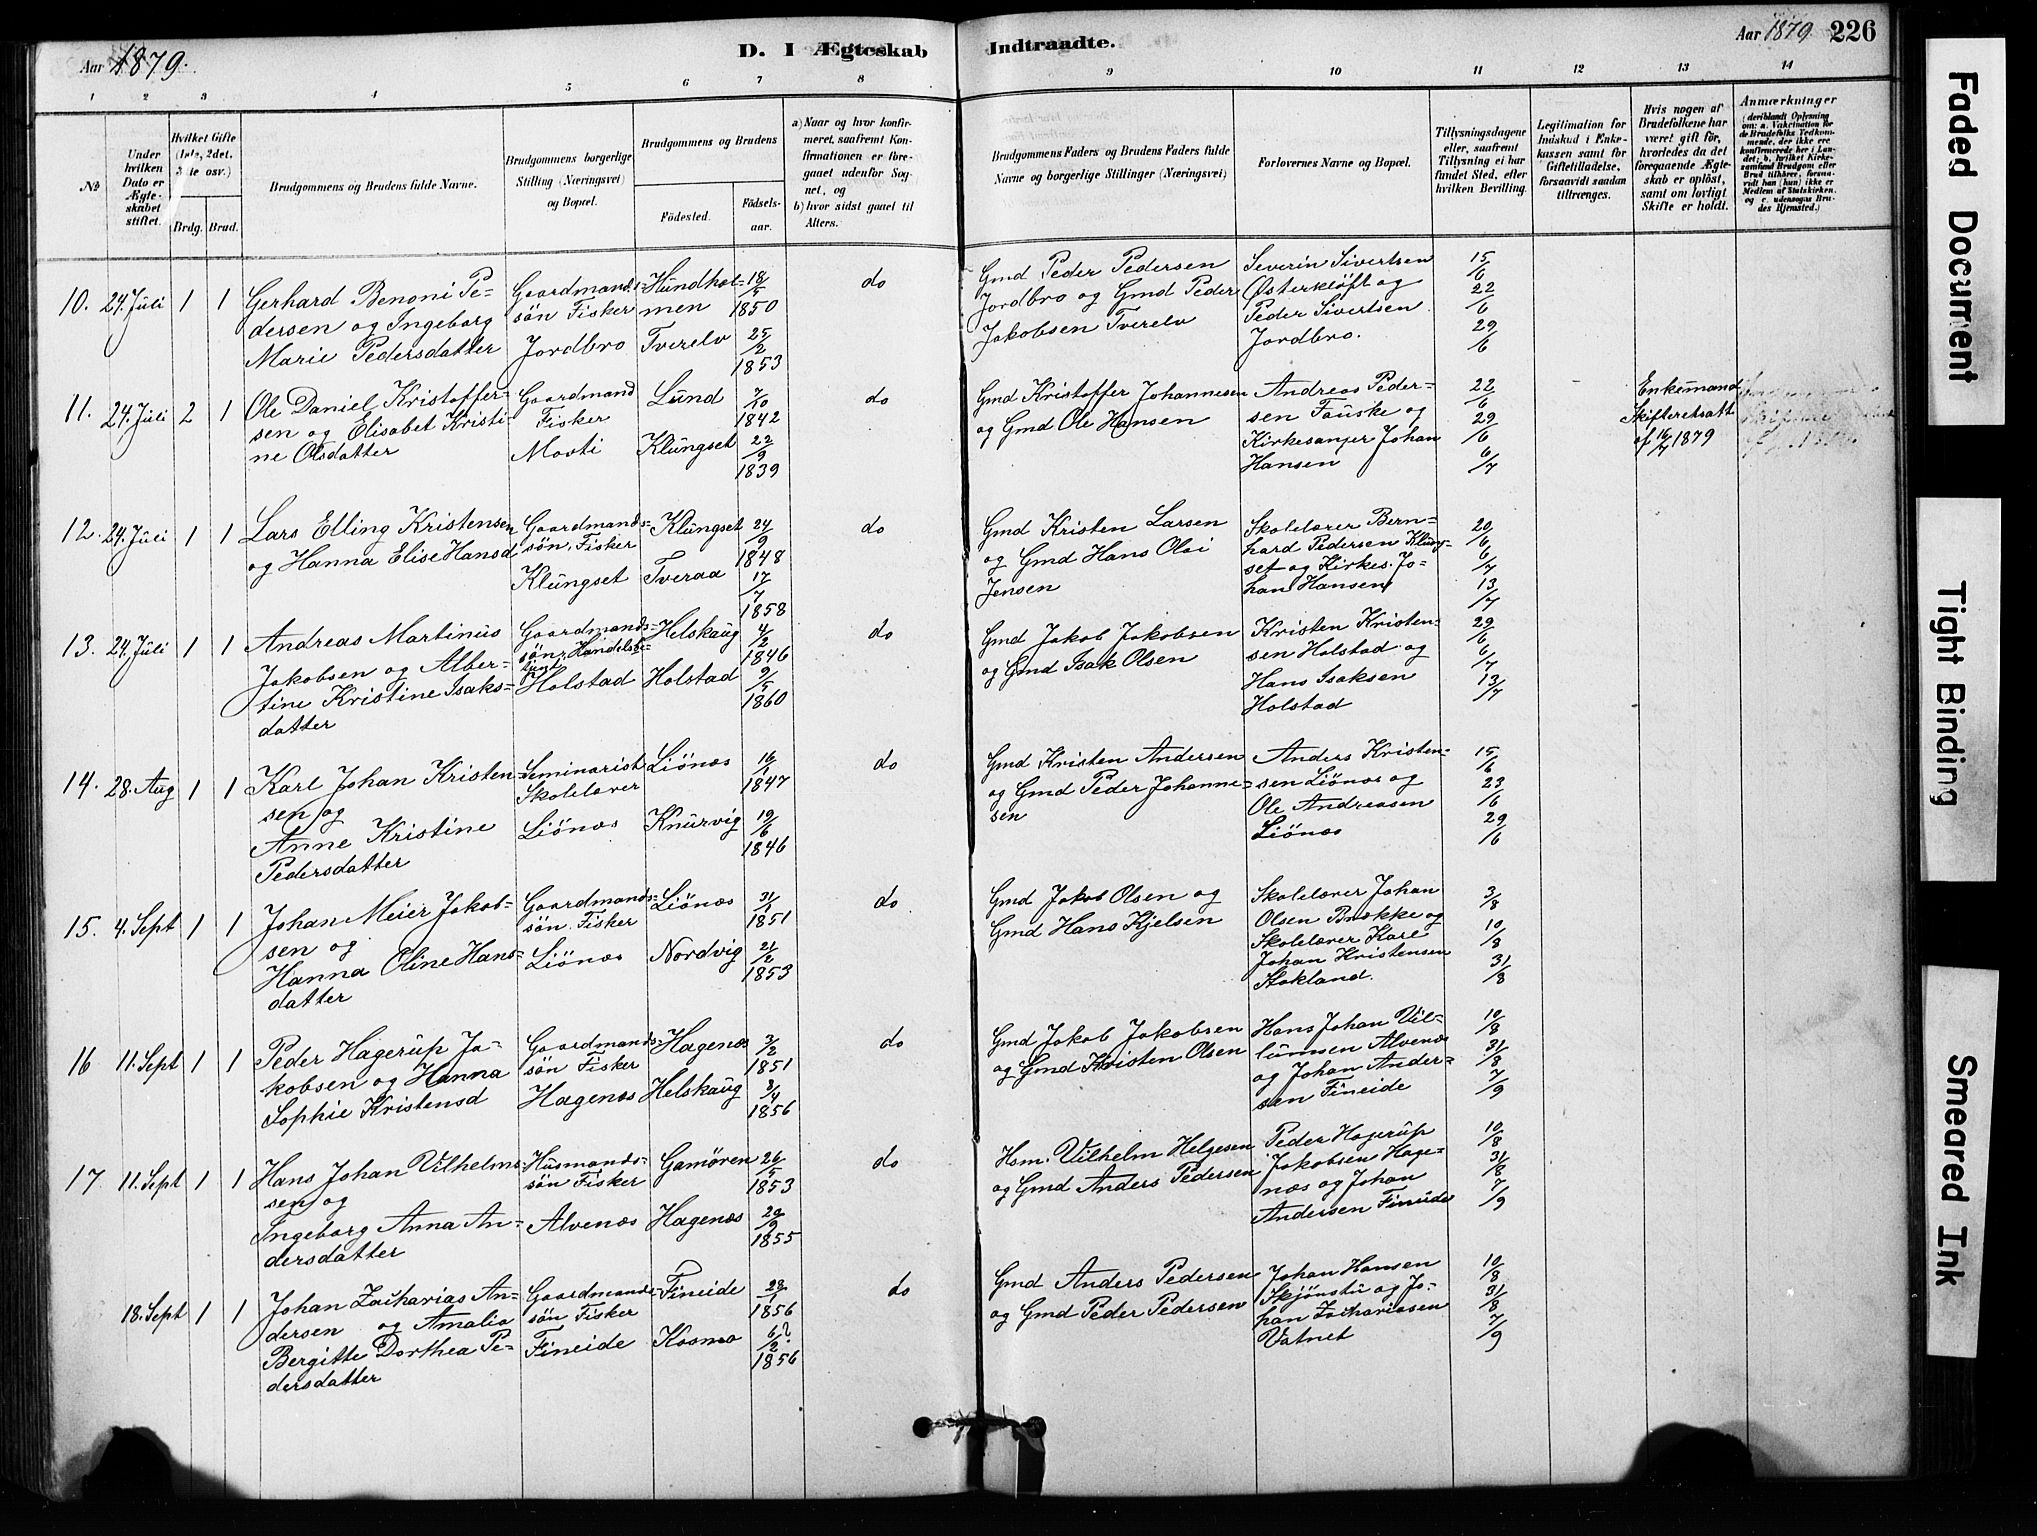 Aar 1879.
D. I Ægteskab Indtraadte.
Aar 1879 226
1 2 3 4 5 6 7 8 9 10 11 12 13 14
No
Under hvilken Dato er Ægteskabet stiftet.
Hvilket Gifte (1ste, 2det, 3die osv.)
Brdg. Brud.
Brudgommens og Brudens fulde Navne.
Brudgommens borgerlige Stilling (Næringsvei) og Bopæl.
Brudgommens og Brudens
Födested. Födselsaar.
a) Naar og hvor konfirmeret, saafremt Konfirmationen er foregaaet udenfor Sognet, og
b) hvor sidst gaaet til Alters.
Brudgommens Faders og Brudens Faders fulde Navne og borgerlige Stillinger (Næringsvei)
Forlovernes Navne og Bopæl.
Tillysningsdagene eller, saafremt Tillysning ei har fundet Sted, efter hvilken Bevilling.
Legitimation for Indskud i Enkekassen samt for Giftetilladelse, forsaavidt saadan tiltrænges.
Hvis nogen af Brudefolkene har været gift för, hvorledes da det foregaaende Ægteskab er oplöst, samt om lovligt Skifte er holdt.
Anmærkninger
10. 24. Juli 1 1
Gerhard Benoni Pe-
dersen og Ingeborg
Marie Pedersdatter
Gaardmands-
sön Fisker
Jordbro
Hundhol-
men
Tverelv
18/5
1850
25/2
1853
do
Gmd Peder Pedersen
Jordbro og Gmd Peder
Jakobsen Tverelv
Severin Sivertsen
Østerkløft og
Peder Sivertsen
Jordbro.
15/6
22/6
29/6
11. 24. Juli 2 1
Ole Daniel Kristoffer-
sen og Elisabet Kristi-
ne Olsdatter
Gaardmand
Fisker
Movti
Lund
Klungset
7/10
1842
22/9
1839
do
Gmd Kristoffer Johannesen
og Gmd Ole Hansen
Andreas Peder-
sen Fauske og
Kirkesanger Johan
Hansen
22/6
29/6
6/7
Enkemand
Skifteretsatt
af 16/7 1879
12. 24. Juli 1 1
Lars Elling Kristensen
og Hanna Elise Hansd
Gaardmands-
sön, Fisker
Klungset
Klungset
Tveraa
24/9
1848
17/7
1858
do
Gmd Kristen Larsen
og Gmd Hans Olai
Jensen
Skolelærer Bern-
hard Pedersen Klung-
set og Kirkes. Jo-
han Hansen
29/6
6/7
13/7
13. 24. Juli 1 1
Andreas Martinus
Jakobsen og Alber-
tine Kristine Isaks-
datter
Gaardmands-
sön, Handelsbe-
tjent
Holstad
Helskaug
Holstad
4/2
1846
9/5
1860
do
Gmd Jakob Jakobsen
og Gmd Isak Olsen
Kristen Kristen-
sen Holstad og
Hans Isaksen
Holstad
29/6
6/7
13/7
14. 28. Aug 1 1
Karl Johan Kristen-
sen og
Anne Kristine
Pedersdatter
Seminarist
Skolelærer
Liönes
Liönes
Knurvig
16/1
1847
19/6
1846
do
Gmd Kristen Andersen
og Gmd Peder Johanne-
sen
Anders Kristen-
sen Liönes og
Ole Andreasen
Liönes
15/6
23/6
29/6
15. 4. Sept 1 1
Johan Meier Jakob-
sen og
Hanna Oline Hans-
datter
Gaardmands-
sön. Fisker
Liönes
Liönes
Nordvig
1851
21/2
1853
do
Gmd Jakob Olsen og
Gmd Hans Kjelsen
Skolelærer Johan
Olsen Brække og
Skolelærer Karl
Johan Kristensen
Stokland.
3/8
10/8
31/8
16 11. Sept 1 1
Peder Hagerup Ja-
kobsen og Hanna
Sophie Kristensd
Gaardmands-
sön Fisker
Hagenes
Hagenes
Helskaug
3/2
1851
3/4
1856
do
Gmd Jakob Jakobsen
og Gmd Kristen Olsen
Hans Johan Vil-
lumsen Alvenes
og Johan Ander-
sen Fineide
10/8
31/8
7/9
17. 11. Sept 1 1
Hans Johan Vilhelm-
sen og
Ingeborg Anna An-
dersdatter
Husmands-
sön Fisker
Alvenes
Gamøren
Hagenes
26/5
1853
29/9
1855
do
Hsm. Vilhelm Helgesen
og Gmd Anders Pedersen
Peder Hagerup
Jakobsen Hage-
nes og Johan
Andersen Fineide
10/8
31/8
7/9
18. Sept 1 1
Johan Zacharias An-
dersen og Amalia
Bergitte Dorthea Pe-
dersdatter
Gaardmands-
sön Fisker
Fineide
Fineide
Kosmo
28/1
1856
6/2?
1856
do
Gmd Anders Pedersen
og Gmd Peder Pedersen
Johan Hansen
Skjönstu og Jo-
han Zachariasen
Vatnet
10/8
31/8
7/9
Faded Document
Tight Binding
Smeared Ink